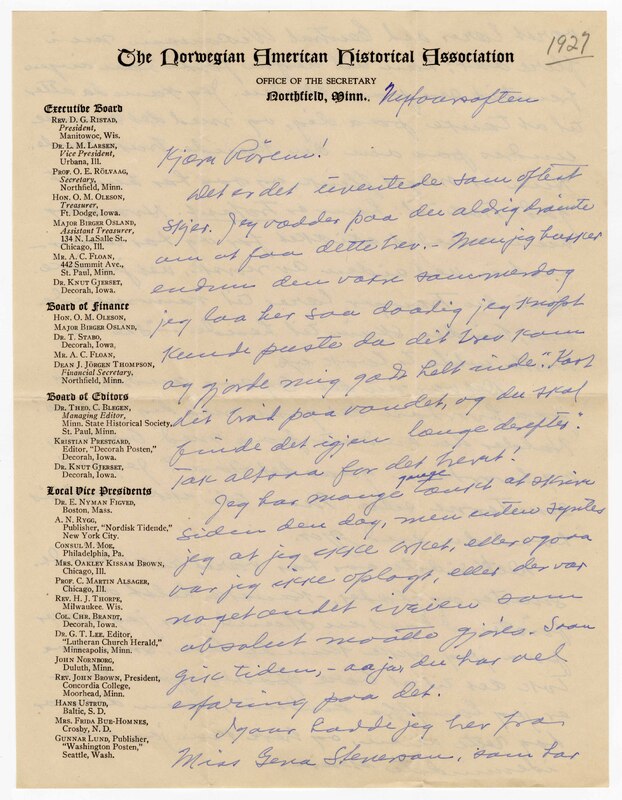 1927
The Norwegian American Historical Association
OFFICE OF THE SECRETARY
Northfield, Minn.
Nyttaarsaften
Executive Board
REV. D. G. RISTAD,
President,
Manitowoc, Wis.
DR. L. M. LARSEN,
Vice President,
Urbana, Ill.
PROF. O. E. RÖLVAAG,
Secretary,
Northfield, Minn.
HON. O. M. OLESON,
Treasurer,
Ft. Dodge, Iowa.
MAJOR BIRGER OSLAND,
Assistant Treasurer,
134 N. LaSalle St.,
Chicago, Ill.
MR. A. C. FLOAN,
442 Summit Ave.,
St. Paul, Minn.
DR. KNUT GJERSET,
Decorah, Iowa.
Board of Finance
HON. O. M. OLESON,
MAJOR BIRGER OSLAND,
DR. T. STABO,
Decorah, Iowa.
MR. A. C. FLOAN,
DEAN J. JÖRGEN THOMPSON,
Financial Secretary,
Northfield, Minn.
Board of Editors
DR. THEO. C. BLEGEN,
Managing Editor,
Minn. State Historical Society,
St. Paul, Minn.
KRISTIAN PRESTGARD,
Editor, "Decorah Posten,"
Decorah, Iowa.
DR. KNUT GJERSET,
Decorah, Iowa.
Local Vice Presidents
DR. E. NYMAN FIGVED,
Boston, Mass.
A. N. RYGG,
Publisher, "Nordisk Tidende,"
New York City.
CONSUL M. MOE,
Philadelphia, Pa.
MRS. OAKLEY KISSAM BROWN,
Chicago, Ill.
PROF. C. MARTIN ALSAGER,
Chicago, Ill.
REV. H. J. THORPE,
Milwaukee. Wis.
COL. CHR. BRANDT,
Decorah, Iowa.
DR. G. T. LEE, Editor,
"Lutheran Church Herald,"
Minneapolis, Minn.
JOHN NORNBORG,
Duluth, Minn.
REV. JOHN BROWN, President,
Concordia College,
Moorhead, Minn.
HANS USTRUD,
Baltic, S. D.
MRS. FRIDA BUE-HOMNES,
Crosby, N. D.
GUNNAR LUND, Publisher,
"Washington Posten,"
Seattle, Wash.
Kjære Rörem!
Det er det uventede som oftest
skjer. Jeg vædder paa du aldrig drömte
om at faa dette brev. - Men jeg husker
endnu den vakre sommerdag
jeg laa her saa daarlig jeg knapt
kunde puste da dit brev kom
og gjorde mig godt helt inde. "Kast
dit bröd paa vandet, og du skal
finde det igjen længe derefter".
Tak altsaa for det brevet!
Jeg har mange gange tænkt at skrive
siden den dag, men enden syntes
jeg at jeg ikke orket, eller ogsaa
var jeg ikke oplagt, eller der var
noget andet iveien som
absolut maatte gjöres. Saan
gik tiden, - aaja, du har vel
erfaring paa det.
Igaar hadde jeg her fra
Miss Gena Stenerson, som har